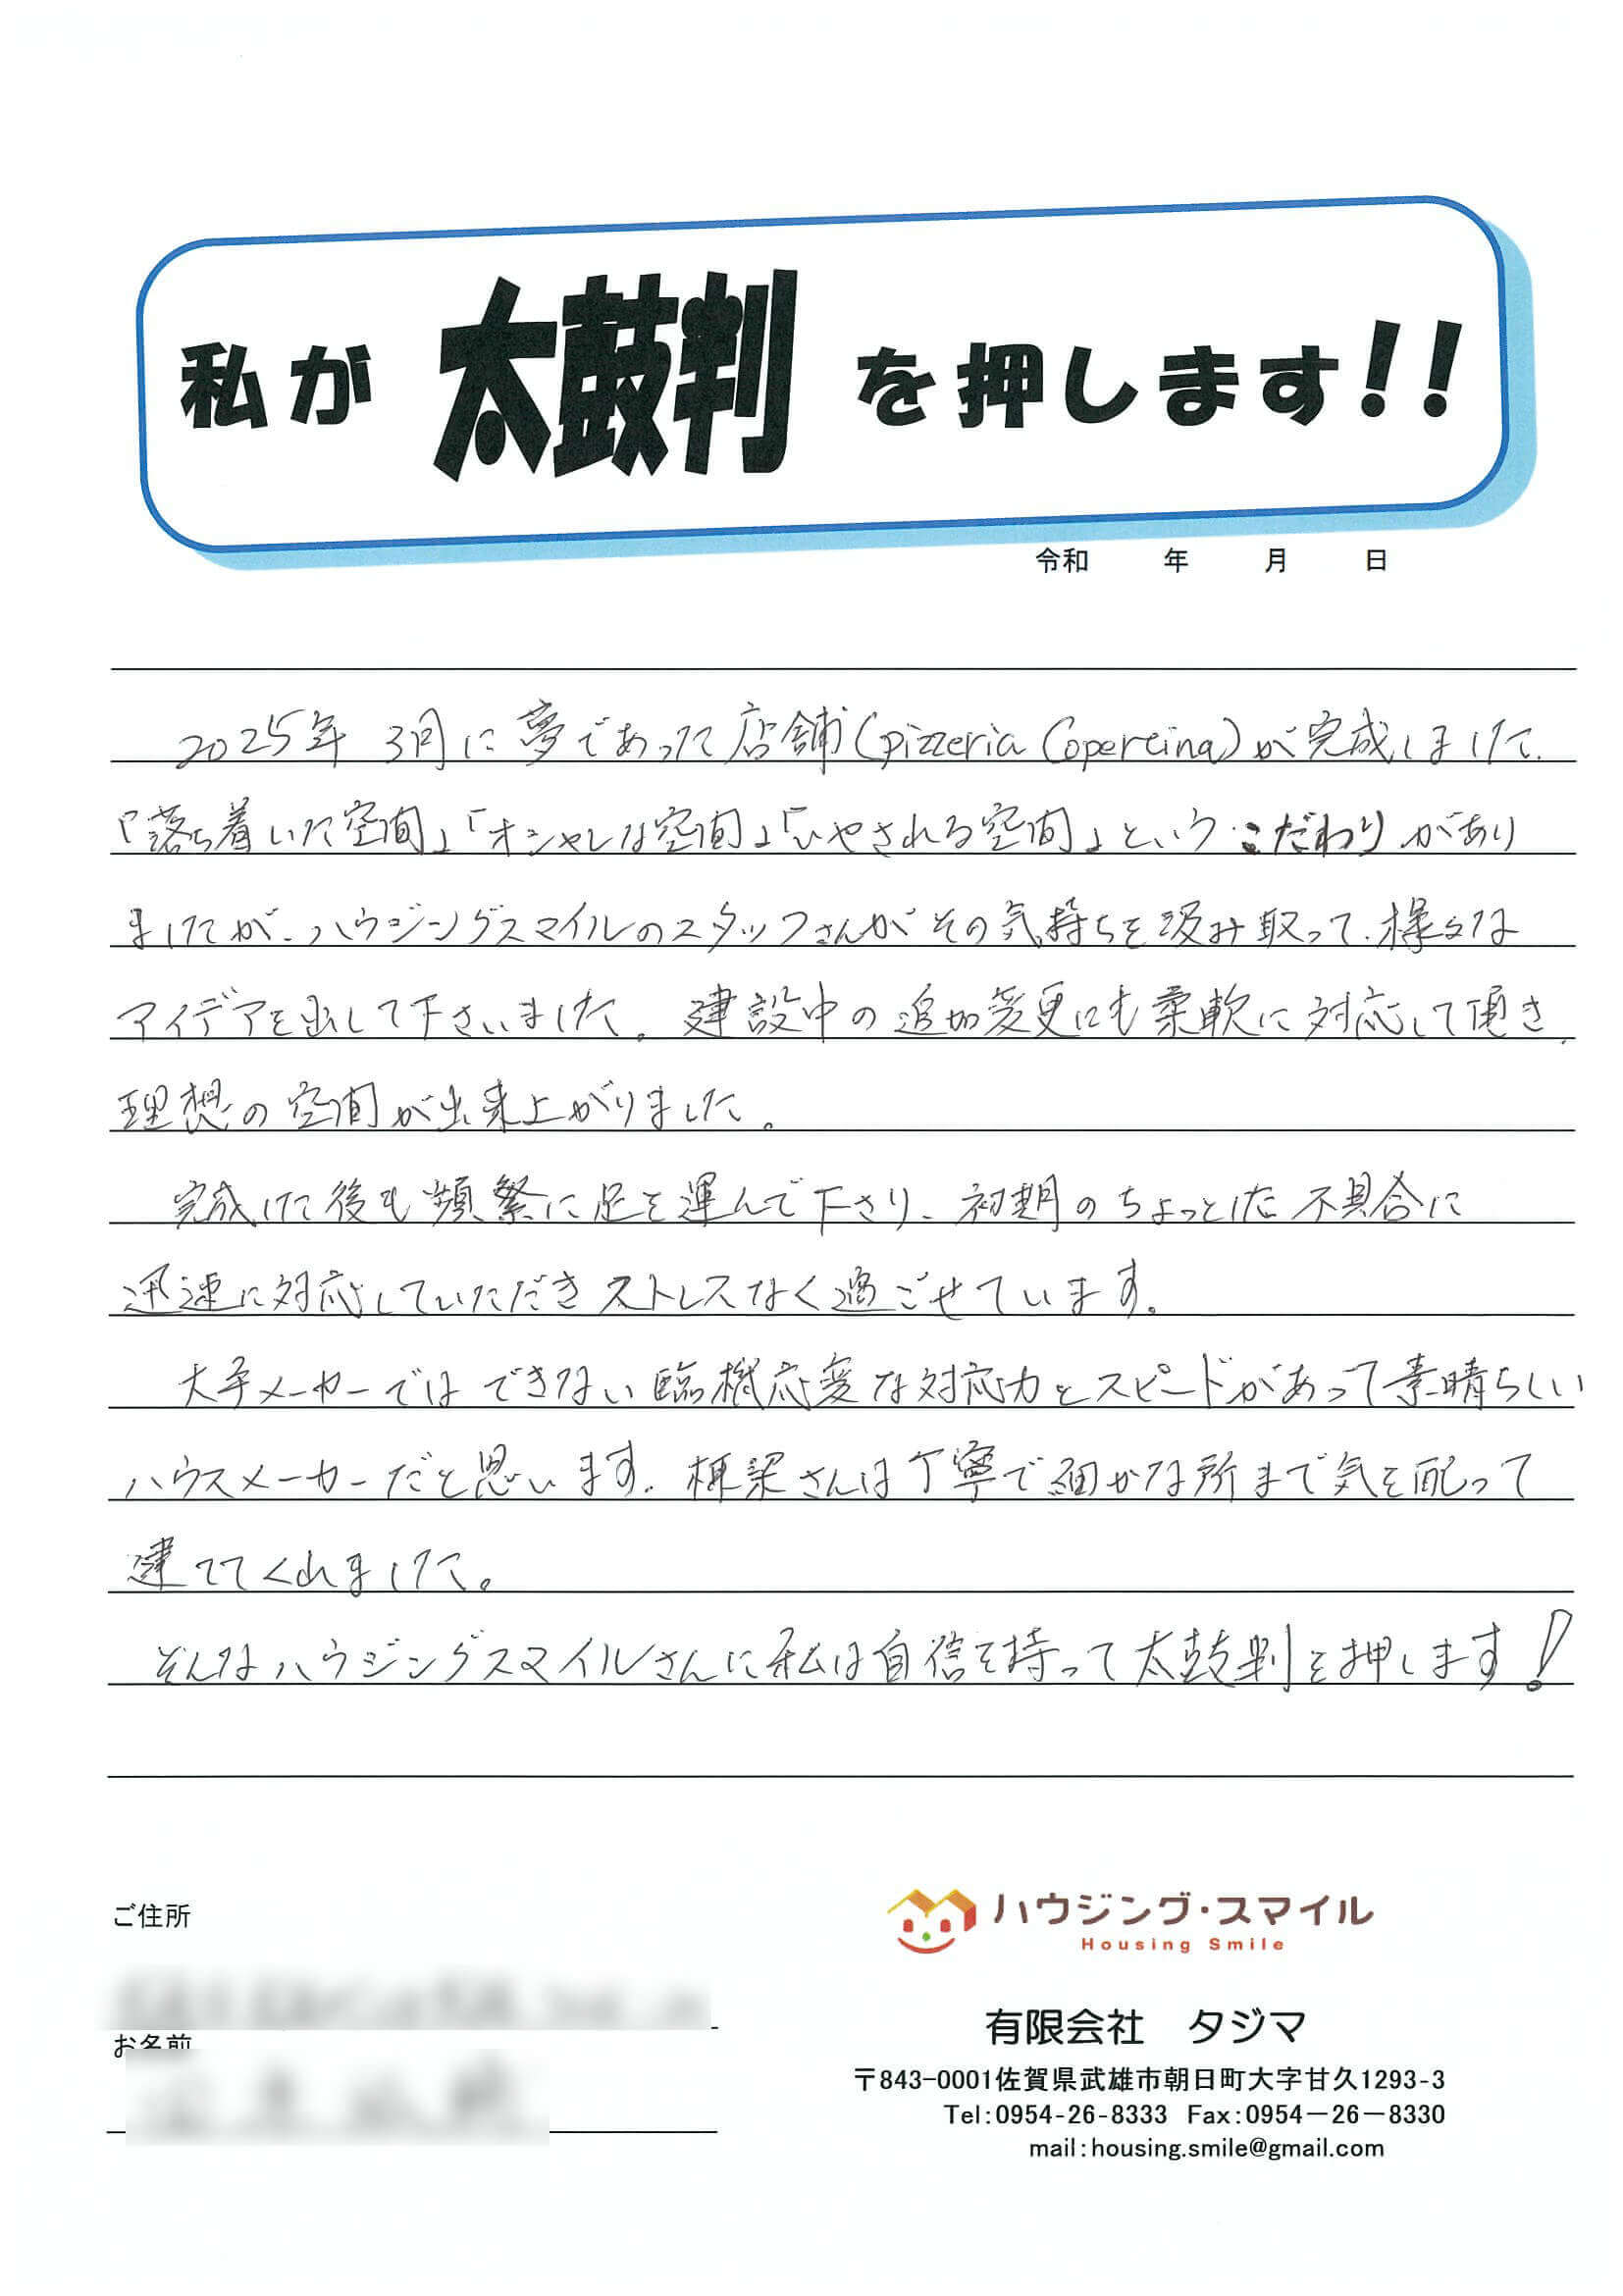 私が 太鼓判 を押します!!
令和 年 月 日
2025年 3月に夢であった店舗(pizzeria Copertina)が完成しました.
「落ち着いた空間」「オシャレな空間」「いやされる空間」というこだわりがあり
ましたが、ハウジングスマイルのスタッフさんがその気持ちを汲み取って、様々な
アイデアを出して下さいました。建設中の追加変更にも柔軟に対応して頂き、
理想の空間が出来上がりました。
完成した後も頻繁に足を運んで下さり、初期のちょっとした不具合に
迅速に対応していただきストレスなく過ごせています。
大手メーカーではできない臨機応変な対応力とスピードがあって素晴らしい
ハウスメーカーだと思います。棟梁さんは丁寧で細かな所まで気を配って
建ててくれました。
そんなハウジングスマイルさんに私は自信を持って太鼓判を押します!
ご住所
お名前
ハウジング・スマイル
Housing Smile
有限会社 タジマ
〒843-0001佐賀県武雄市朝日町大字甘久1293-3
Tel:0954-26-8333 Fax:0954-26-8330
mail:housing.smile@gmail.com